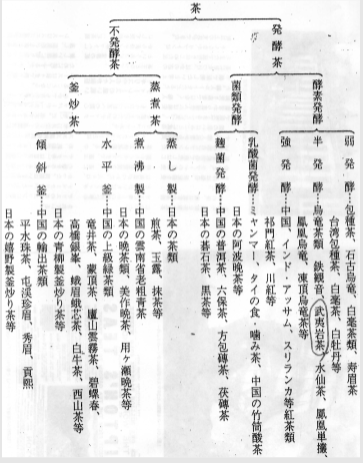 茶
発酵茶
不発酵茶
酵素発酵
菌類発酵
蒸煮茶
釜炒茶
弱発酵
包種茶 石古烏竜、白毫茶類、寿眉茶
台湾包種茶、白毫茶、白牡丹等
半発酵
烏竜茶類 鉄観音 武夷岩茶 水仙茶、鳳凰単欉、
鳳凰烏竜、凍頂烏竜茶等
強発酵
中国、インド・アッサム、スリランカ等紅茶類
祁門紅茶、川紅等
乳酸菌発酵
ミャンマー、タイの食・噛み茶、中国の竹筒酸茶
日本の阿波晩茶等
麹菌発酵
中国の普洱茶、六保茶、方包磚茶、茯磚茶
日本の碁石茶、黒茶等
蒸し製
日本の茶類
煎茶、玉露、抹茶等
煮沸製
中国の雲南省老粗青茶
日本の晩茶類 美作晩茶、用ヶ瀬晩茶等
水平釜
中国の上級緑茶類
竜井茶、蒙頂茶、廬山雲霧茶、碧螺春、
高橋銀峯、峨眉峨芯茶、白牛茶、西山茶等
日本の青柳製釜炒り茶等
傾斜釜
中国の輸出茶類
平水珠茶、屯渓珍眉、秀眉、貢熙
日本の嬉野製釜炒り茶等